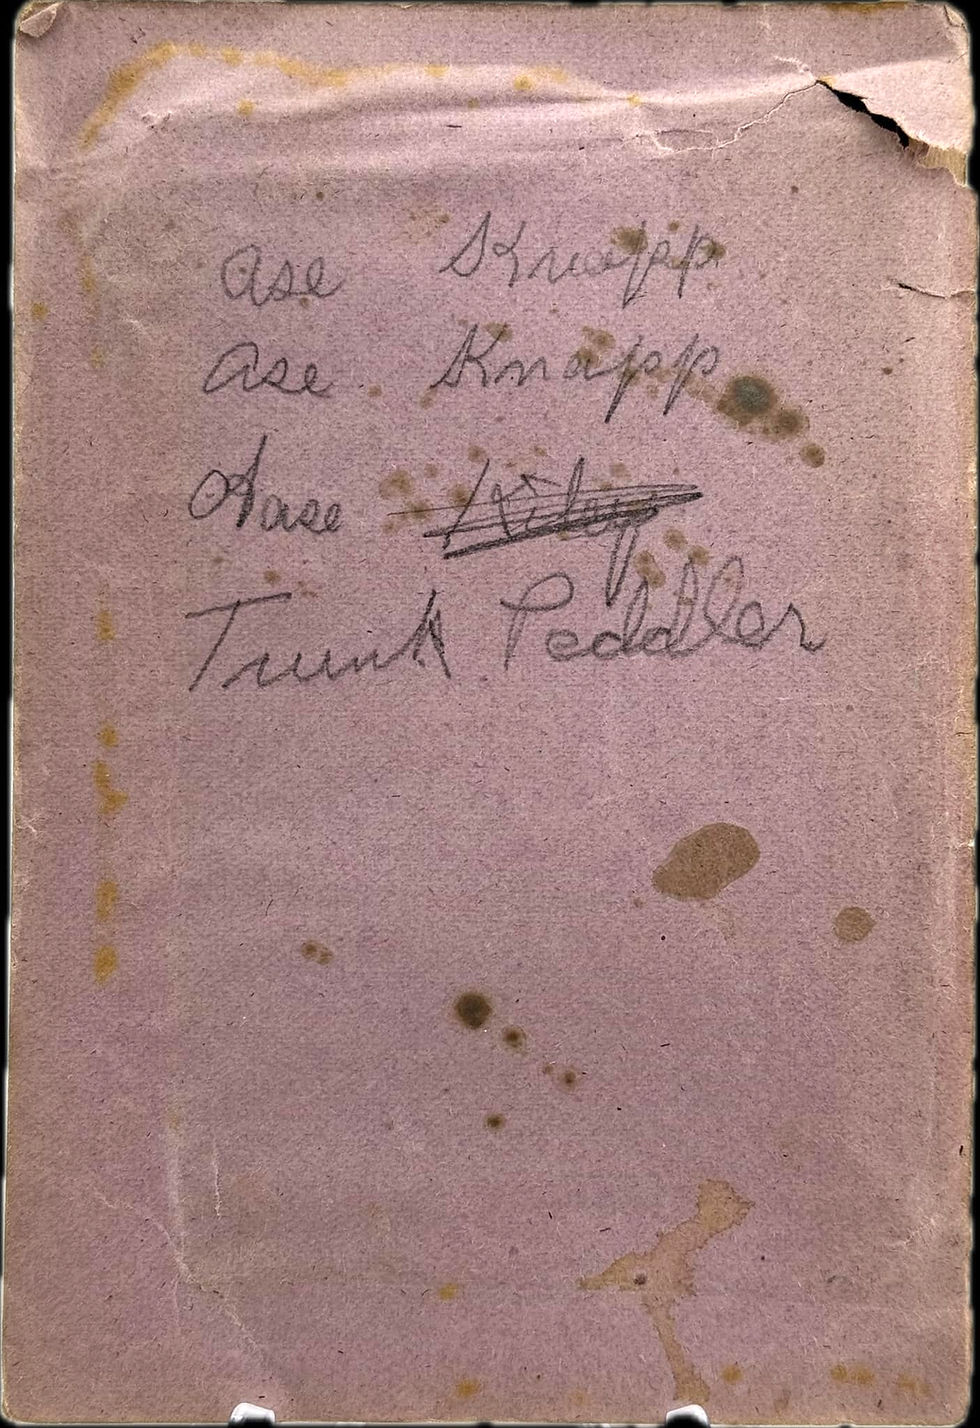 Ase Knapp
Ase Knapp
Aase
Trunk Peddler